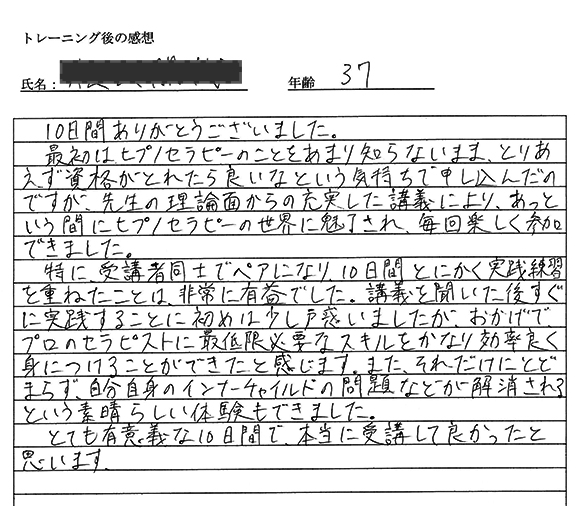 トレーニング後の感想
氏名：
年齢 37
10日間ありがとうございました。
最初はヒプノセラピーのことをあまり知らないまま、とりあ
えず資格がとれたら良いなという気持ちで申し込んだの
ですが、先生の理論面からの充実した講義により、あっと
いう間にヒプノセラピーの世界に魅了され、毎回楽しく参加
できました。
特に、受講者同士でペアになり、10日間とにかく実践練習
を重ねたことは、非常に有益でした。講義を聞いた後すぐ
に実践することに初めは少し戸惑いましたが、おかげで、
プロのセラピストに最低限必要なスキルをかなり効率良く
身につけることができたと感じます。また、それだけにとど
まらず、自分自身のインナーチャイルドの問題などが解消される
という素晴らしい体験もできました。
とても有意義な10日間で、本当に受講して良かったと
思います。